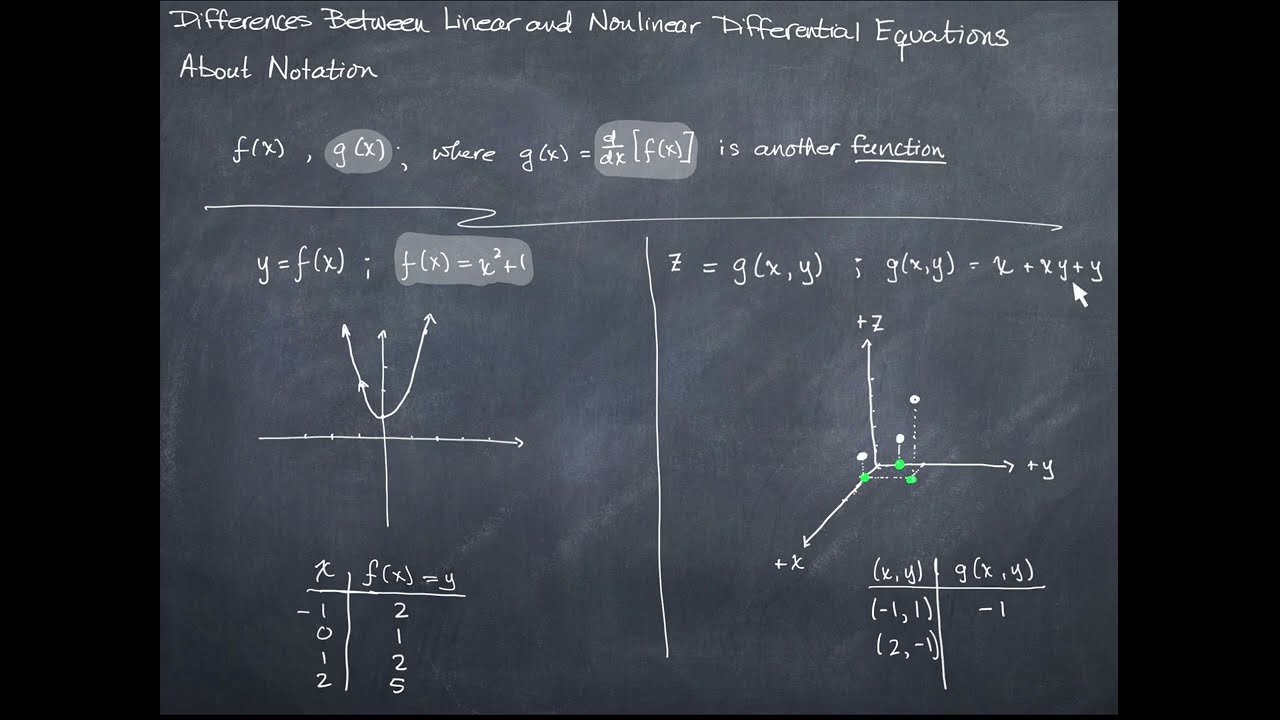 Differences Between Linear and Nonlinear Differential Equations
About Notation
f(x) , g(x) ; where g(x) = d/dx [f(x)] is another function
y = f(x) ; f(x) = x² + 1
z = g(x, y) ; g(x, y) = x + xy + y
+z
+y
+x
x | f(x) = y
-1 | 2
0 | 1
1 | 2
2 | 5
(x, y) | g(x, y)
(-1, 1) | -1
(2, -1) |